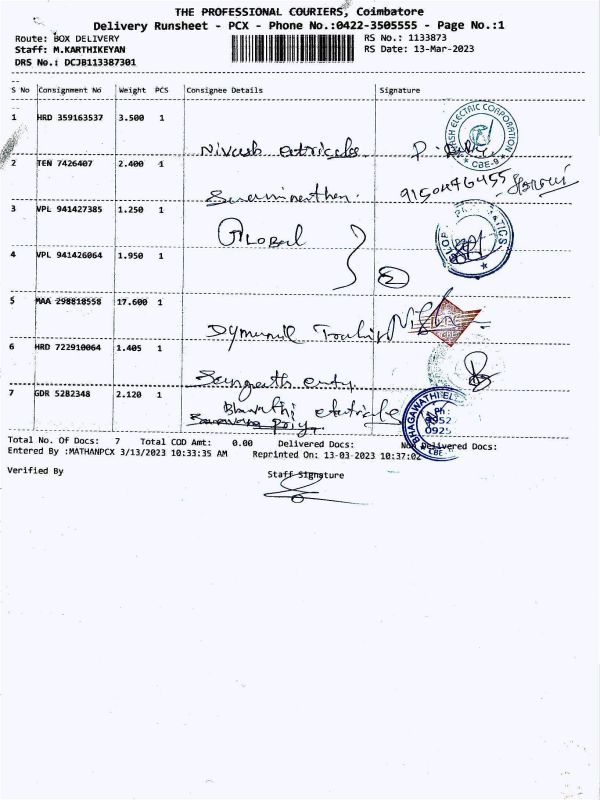 THE PROFESSIONAL COURIERS, Coimbatore
Delivery Runsheet - PCX - Phone No.:0422-3505555 - Page No.:1
Route: BOX DELIVERY RS No.: 1133873
Staff: M.KARTHIKEYAN RS Date: 13-Mar-2023
DRS No.: DCJB113387301
S No Consignment No Weight PCS Consignee Details Signature
1 HRD 359163537 3.500 1
Nivash
ELECTRIC CORPORATION
CBE-9
2 TEN 7426407 2.400 1
9150476455
3 VPL 941427385 1.250 1
Global
4 VPL 941426064 1.950 1
2
5 MAA 298818558 17.600 1
6 HRD 722910064 1.405 1
7 GDR 5282348 2.120 1
Bharathi
BHAGAWATHI EL
Ph:
0952
0925
CBE
Total No. Of Docs: 7 Total COD Amt: 0.00 Delivered Docs: Non Delivered Docs:
Entered By :MATHANPCX 3/13/2023 10:33:35 AM Reprinted On: 13-03-2023 10:37:02
Verified By Staff Signature